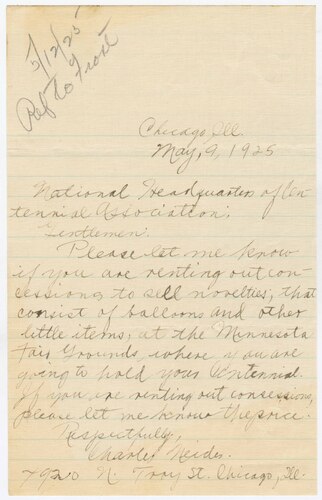 5/12/25
Ref to Frost
Chicago Ill.
May, 9, 1925
National Headquarters of Cen-
tennial Association;
Gentlemen:
Please let me know
if you are renting out con-
cessions to sell novelties, that
consist of balloons and other
little items, at the Minnesota
Fair Grounds, where you are
going to hold your Centennial.
If you are renting out consessions,
please let me know the price.
Respectfully,
Charles
N. Troy St. Chicago, Ill.